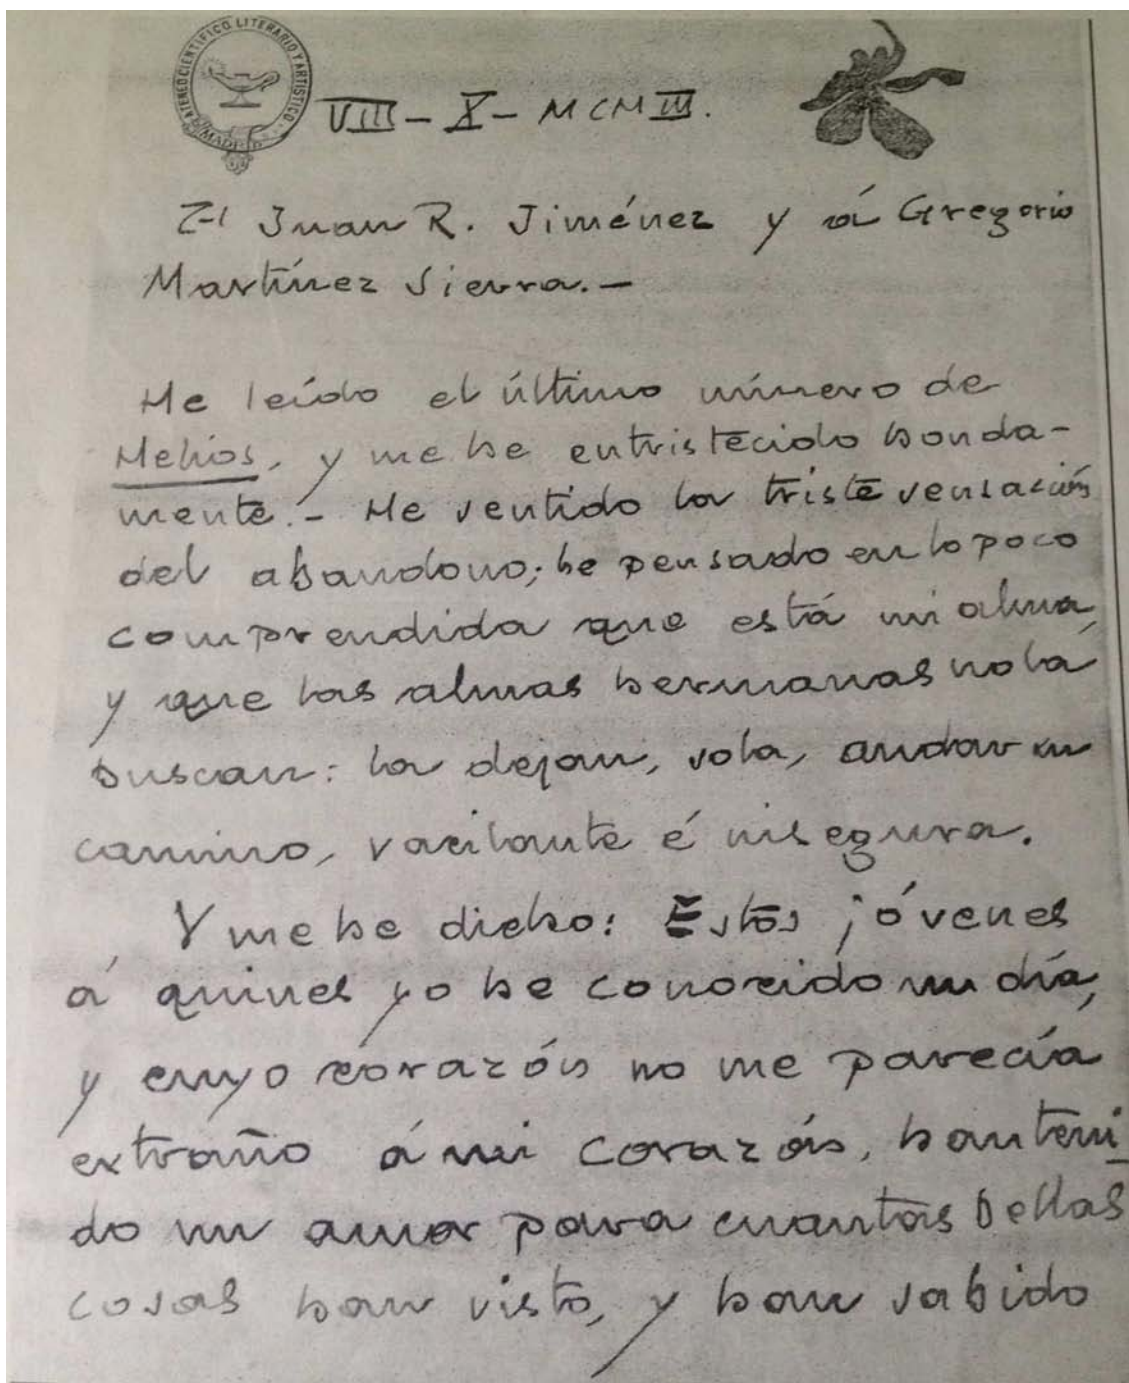 ATENEO CIENTÍFICO, LITERARIO Y ARTÍSTICO.
MADRID
VIII - X - MCMIII.
Juan R. Jiménez y á Gregorio
Martínez Sierra.—
He leído el último número de
Helios, y me he entristecido honda-
mente.- He sentido la triste sensación
del abandono; he pensado en lo poco
comprendida que está mi alma,
y que las almas hermanas no la
buscan: la dejan, sola, andar su
camino, vacilante é insegura.
Y me he dicho: Estos jóvenes
á quines yo he conocido un día,
y cuyo corazón no me parecía
extraño á mi corazón, han teni-
do un amor para cuantas bellas
cosas han visto, y han sabido